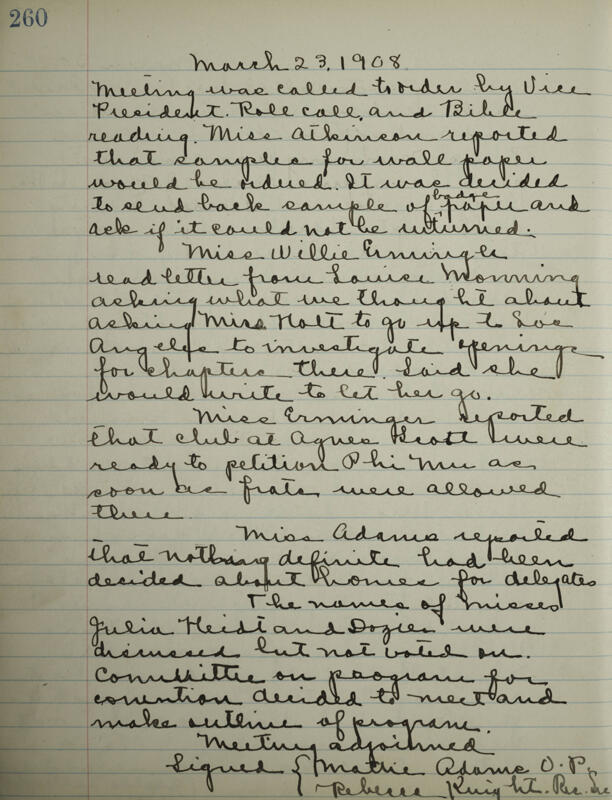 260
March 23, 1908
Meeting was called to order by Vice
President. Roll call, and Bible
reading. Miss Atkinson reported
that samples for wall paper
would be ordered. It was decided
badge
to send back sample of paper and
ask if it could not be returned.
Miss Willie Erminger
read letter from Louise Monning
asking what we thought about
asking Miss Holt to go up to Los
Angeles to investigate openings
for chapters there. Said she
would write to let her go.
Miss Erminger reported
that club at Agnes Scott were
ready to petition Phi Mu as
soon as frats were allowed
there.
Miss Adams reported
that nothing definite had been
decided about homes for delegates
The names of Misses
Julia Heidt and Dozier were
discussed but not voted on.
Committee on program for
convention decided to meet and
make outline of program.
Meeting adjoinned
Signed { Mattie Adams V. P.
Rebecca Knight. Rec. Sec